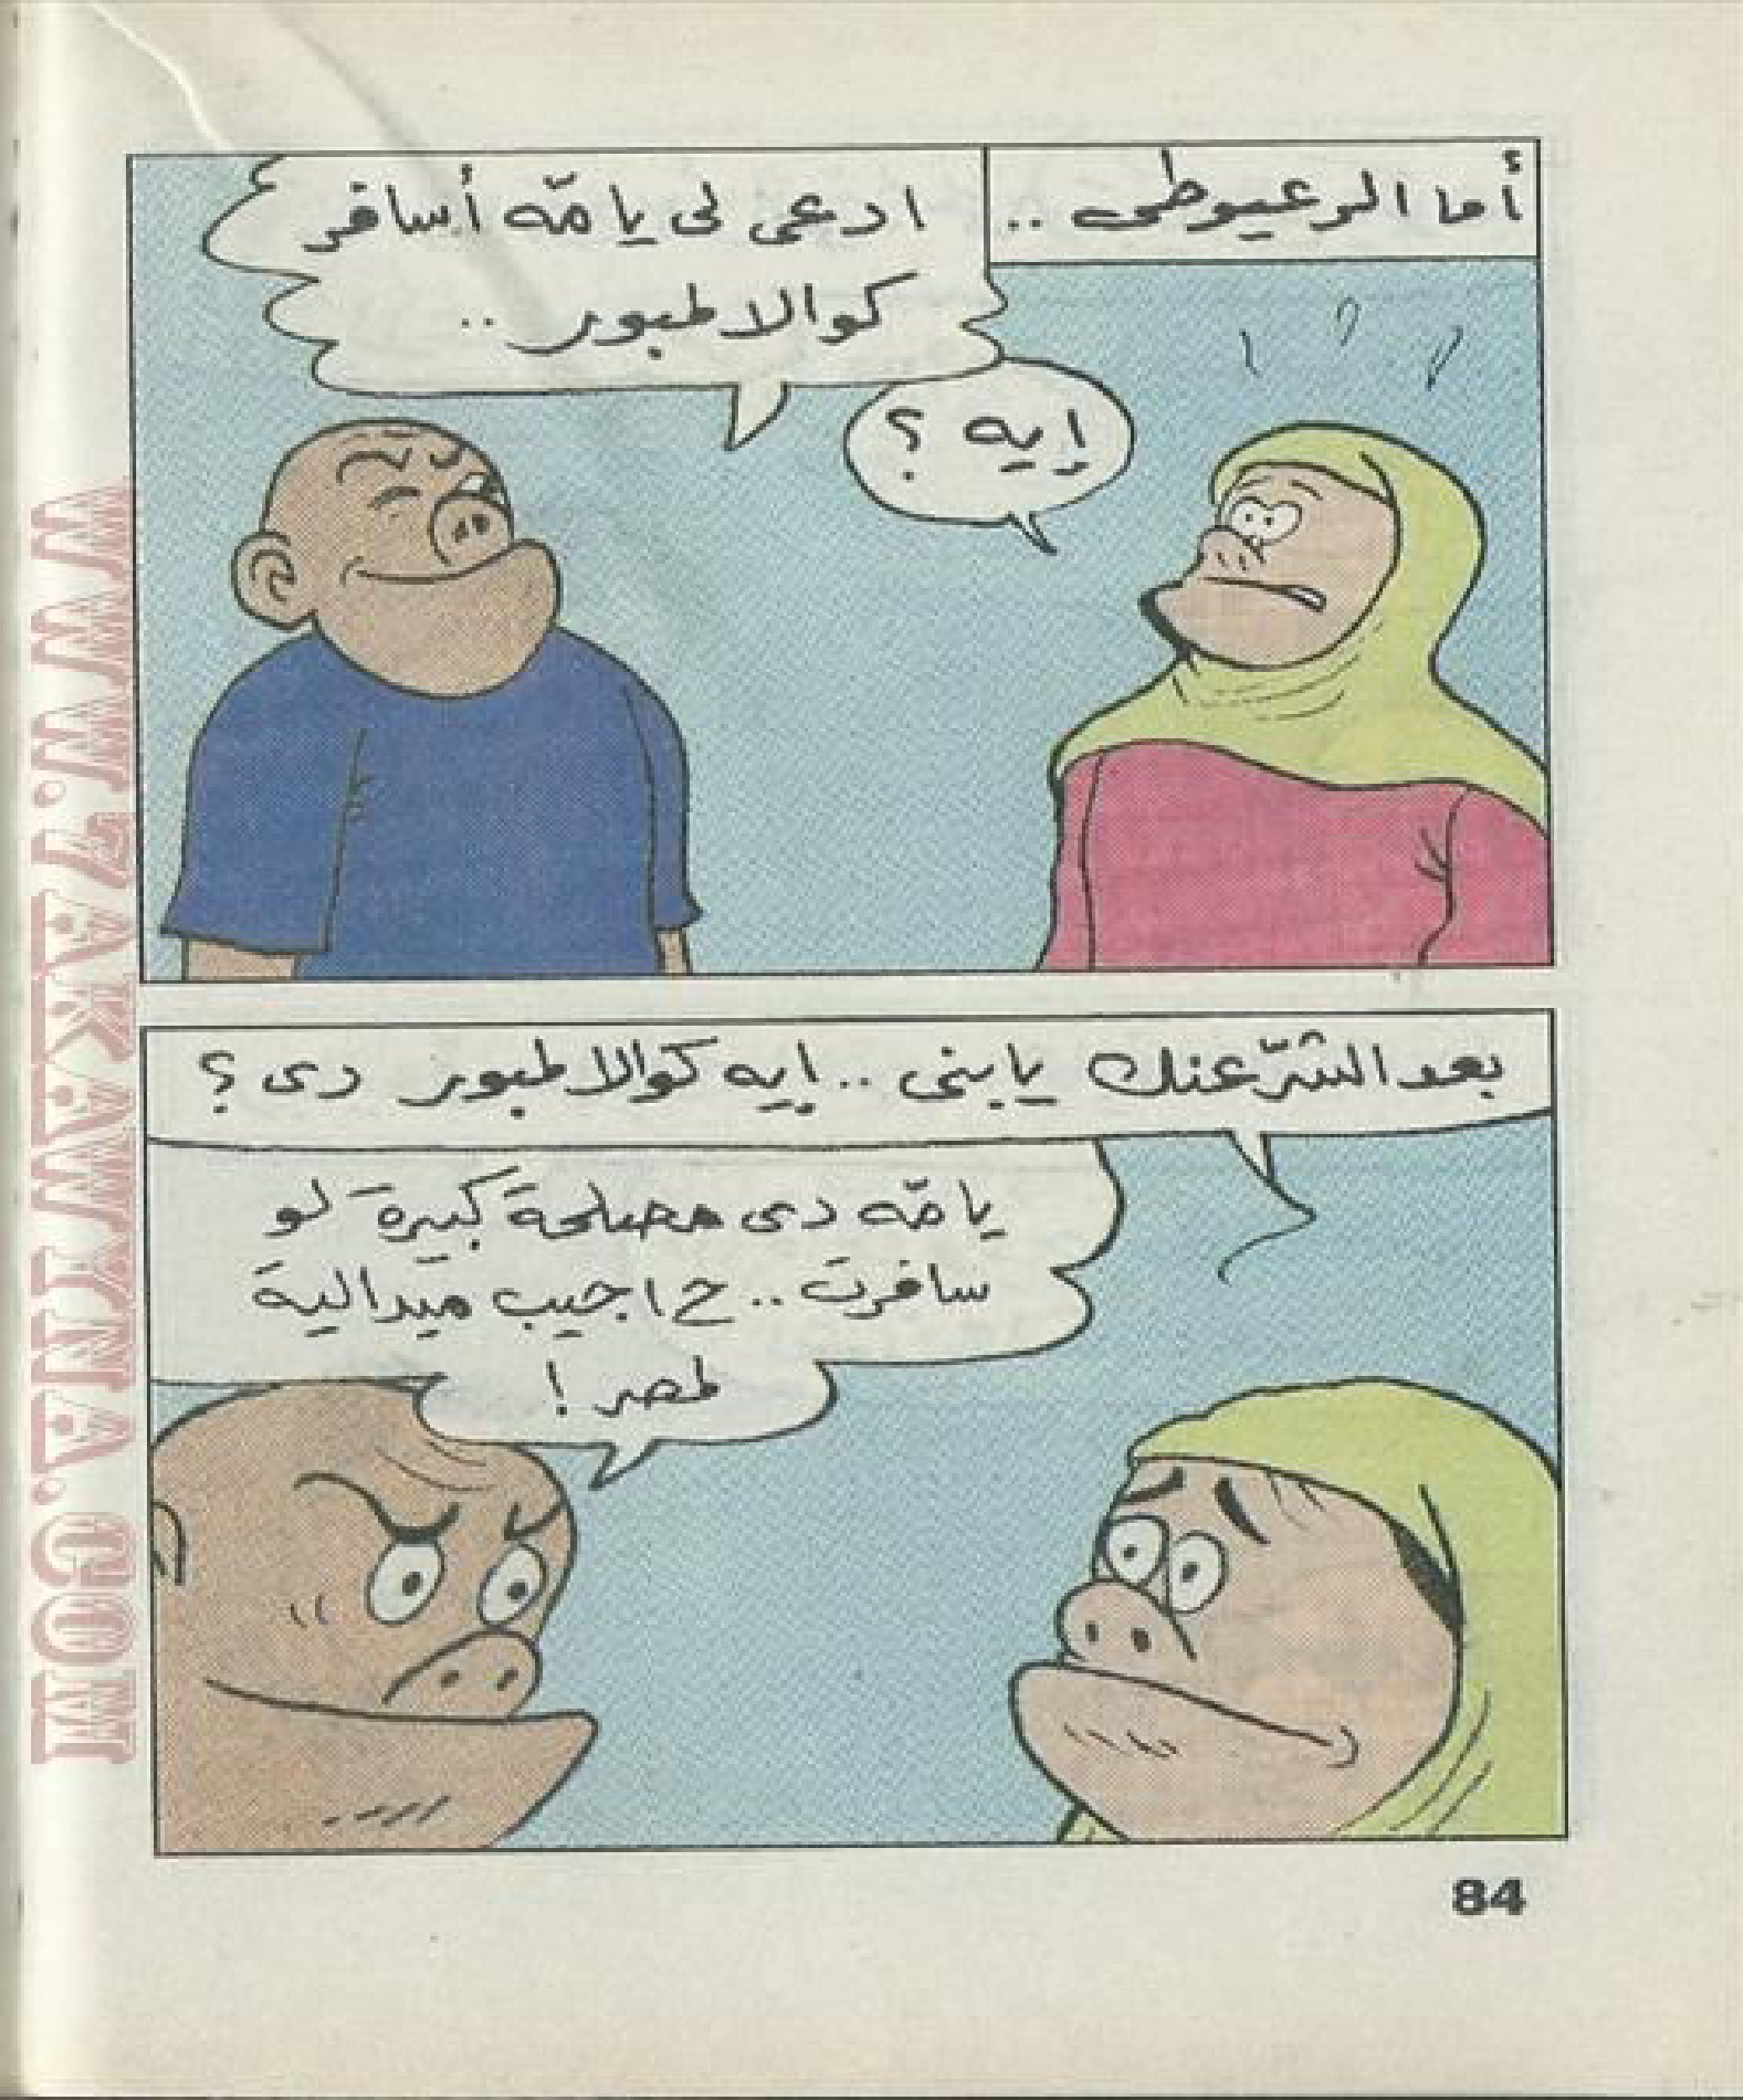 أما الرعيوطى ..
ادعى لى يا مّه أسافر
كوالالمبور ..
إيه ؟
بعد الشّر عنك يابنى .. إيه كوالالمبور دى ؟
يا مّه دى مصلحة كبيرة لو
سافرت .. ح اجيب ميدالية
لمصر !
84
WWW.ZAKAWYNA.COM